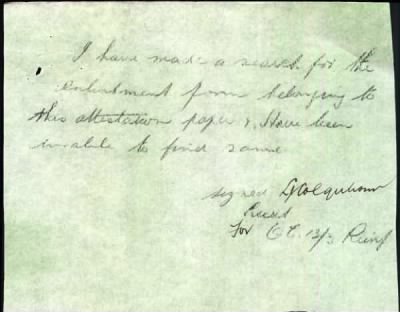 I have made a search for the
enlistment form belonging to
this attestation paper & have been
unable to find same
signed Colquhoun
Lieut
for O.C. 12/3 Reinf